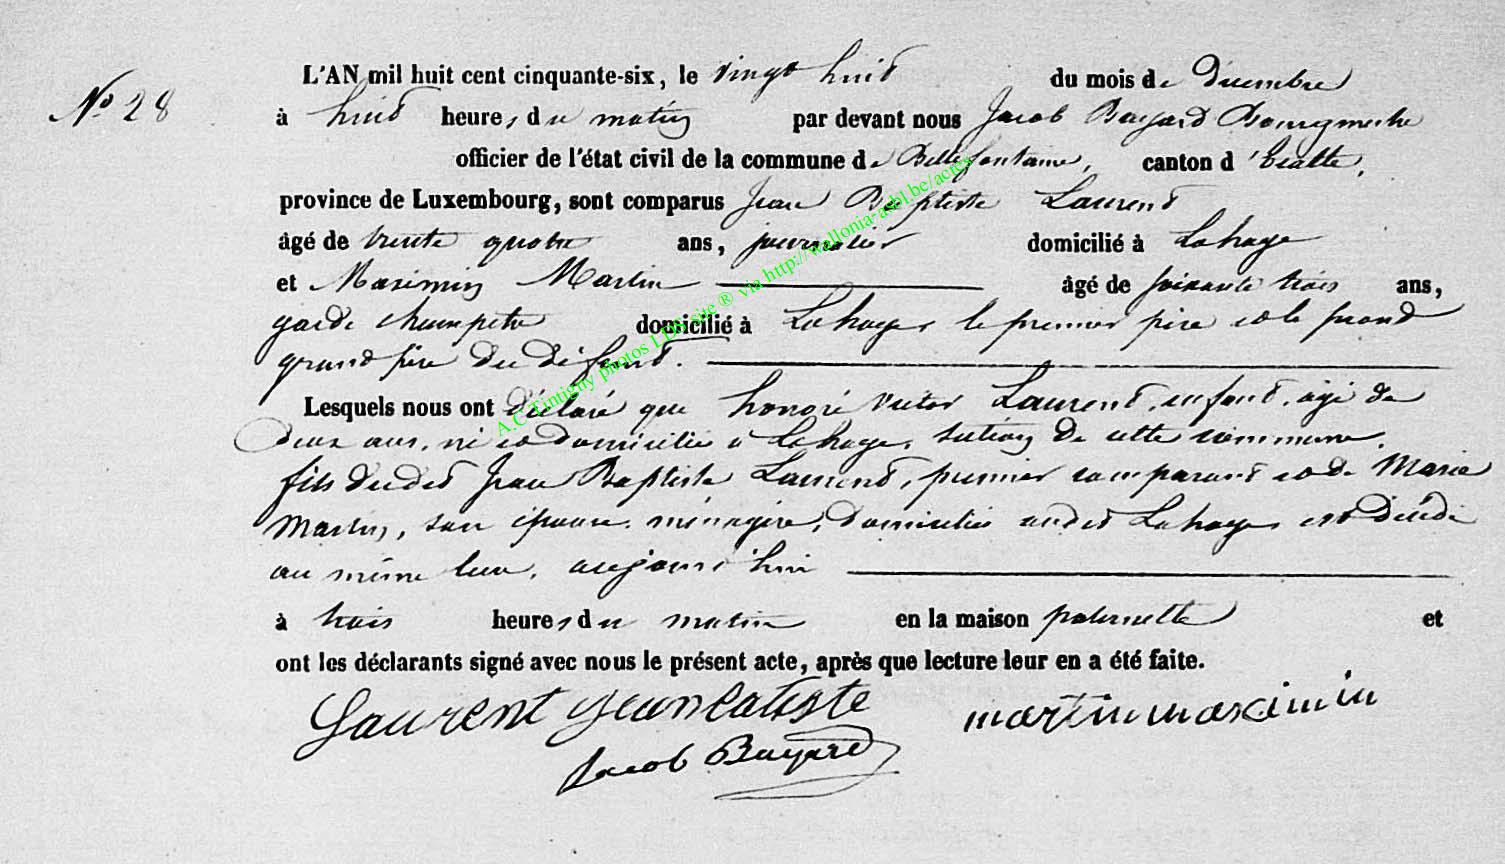 N.º 28
L'AN mil huit cent cinquante-six, le vingt huit du mois de Décembre
à huit heures du matin par devant nous Jacob Bayard Bourgmestre
officier de l'état civil de la commune de Bellefontaine, canton d'Etalle,
province de Luxembourg, sont comparus Jean Baptiste Laurent
âgé de trente quatre ans, journalier domicilié à Lahage
et Maximin Martin âgé de soixante trois ans,
garde champetre domicilié à Lahage, le premier père et le second
grand père du défunt.
Lesquels nous ont déclaré que honoré Victor Laurent, enfant, agé de
deux ans, né et domicilié à Lahage, section de cette commune,
fils dudit Jean Baptiste Laurent, premier comparant et de Marie
Martin, son épouse, ménagère, domiciliée audit Lahage, est décédé
au même lieu, aujourd'hui
à trois heures du matin en la maison paternelle et
ont les déclarants signé avec nous le présent acte, après que lecture leur en a été faite.
Laurent jean batiste martin maximin
Jacob Bayard
A.C Tintigny photos LDS site ® via http://wallonia-asbl.be/acrex